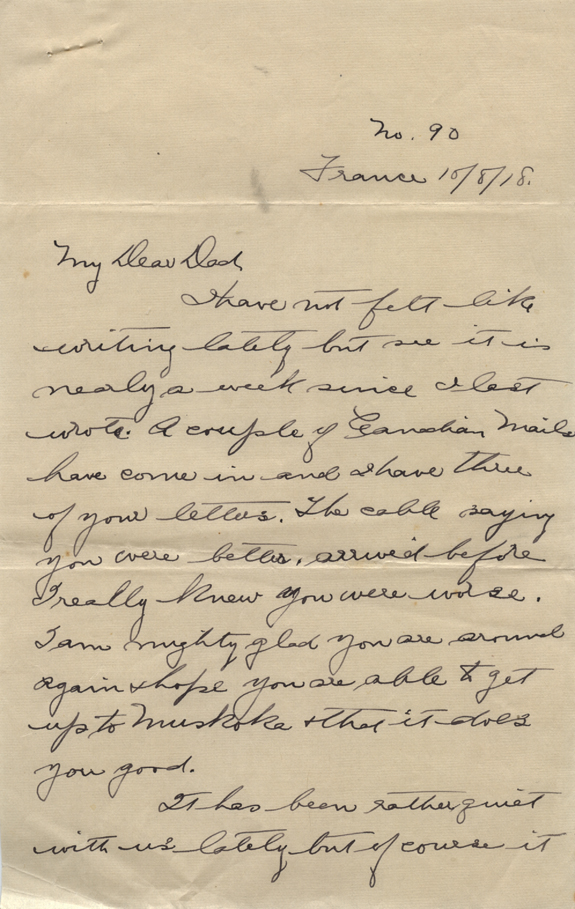 No. 90
France 10/8/18.
My Dear Dad
I have not felt like
writing lately but see it is
nearly a week since I last
wrote. A couple of Canadian Mails
have come in and I have three
of your letters. The cable saying
you were better, arrived before
I really knew you were worse.
I am mighty glad you are around
again & hope you are able to get
up to Muskoka & that it does
you good.
It has been rather quiet
with us lately but of course it